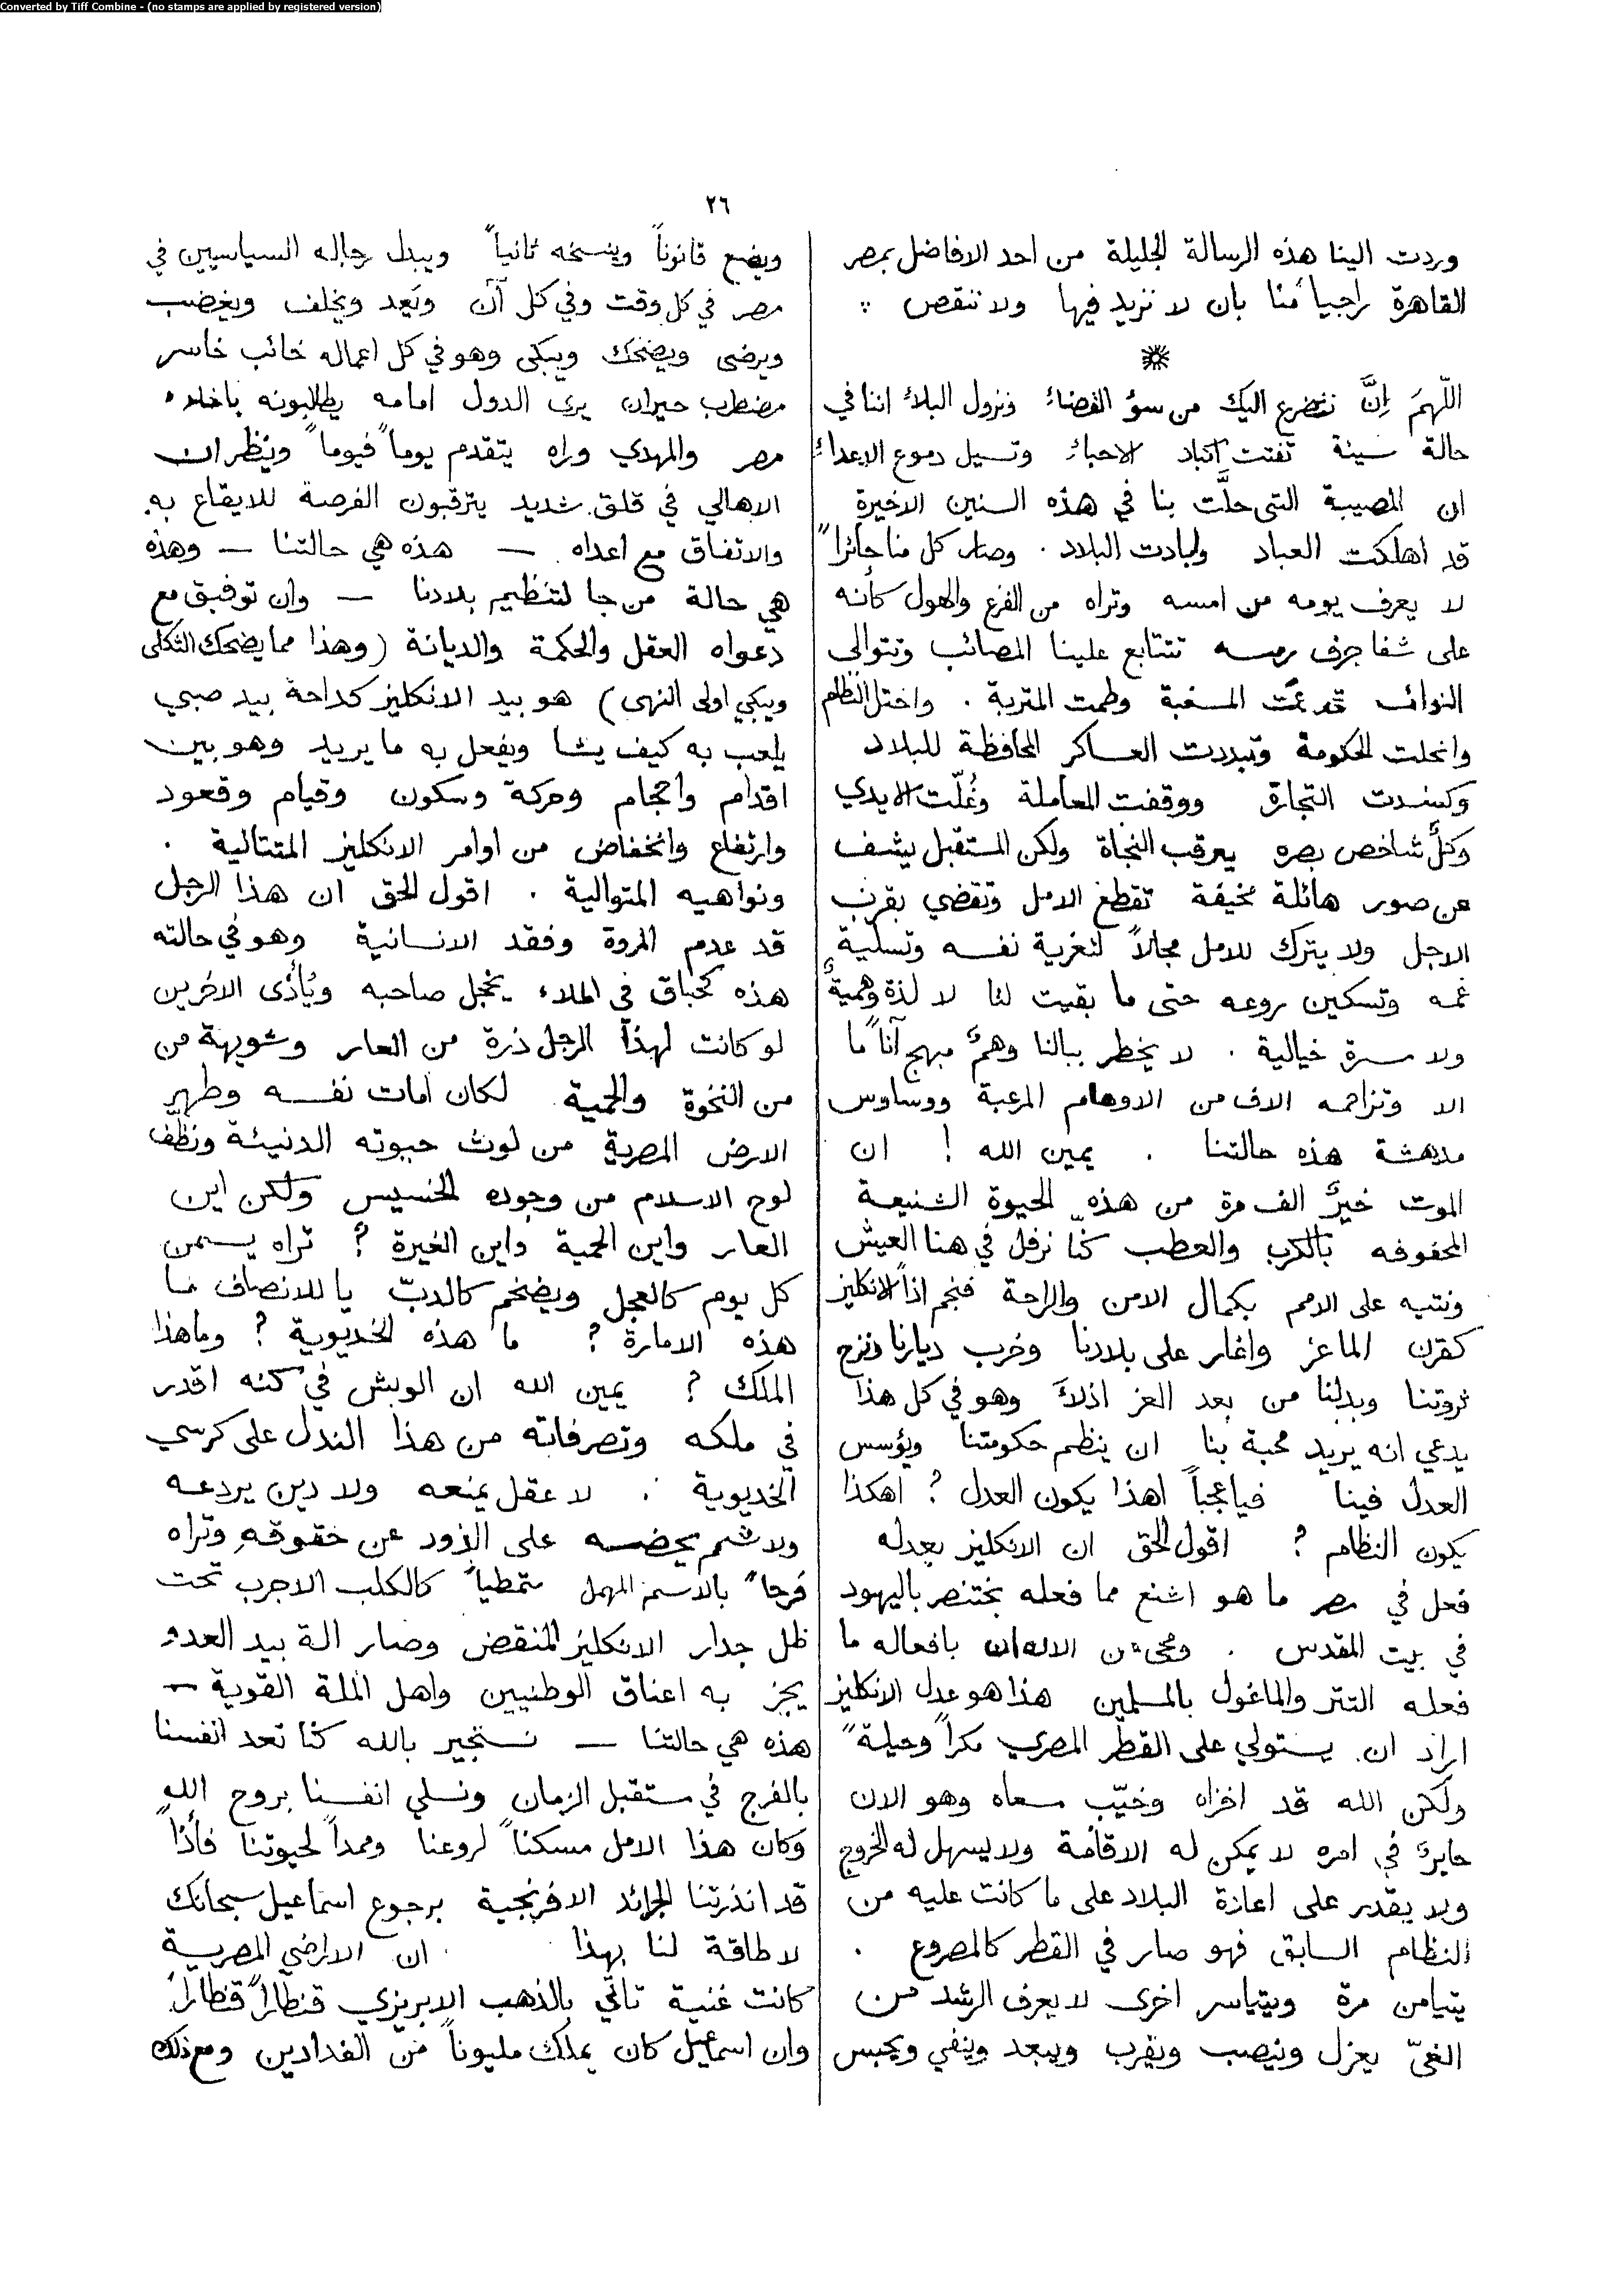 Converted by Tiff Combine - (no stamps are applied by registered version)
٢٦
وردت الينا هذه الرسالة الجليلة من احد الافاضل بمصر
القاهرة راجياً منا بان لا نزيد فيها ولا ننقص
اللّهمَ اِنَّ نتضرع اليك من سؤ القضاء ونزول البلاء اننا في
حالة سيئة تفتت اكباد الاحباء وتسيل دموع الاعداء
ان المصيبة التى حلَّت بنا في هذه السنين الاخيرة
قد اهلكت العباد وابادت البلاد . وصار كل منا حائراً
لا يعرف يومه من امسه وتراه من الفزع والهول كأنه
على شفا جرف رمسه تتتابع علينا المصائب وتتوالى
النوائب قد عمّت المسغبة وطمت المتربة . واختل النظام
وانحلت الحكومة وتبددت العساكر المحافظة للبلاد
وكسدت التجارة ووقفت المعاملة وغُلّت الايدي
وكلٌ شاخص بصره يرقب النجاة ولكن المستقبل يشف
عن صور هائلة مخيفة تقطع الامل وتقضي بقرب
الاجل ولا يترك للامل مجالاً لتغرية نفسه وتسلية
غمه وتسكين روعه حتى ما بقيت لنا لا لذة وهمية
ولا مسرة خيالية . لا يخطر ببالنا وهمٌ مبهج آناً ما
الا وتزاحمه الاف من الاوهام المرعبة ووساوس
مدهشة هذه حالتنا . يمين الله ! ان
الموت خيرٌ الف مرة من هذه الحيوة الشنيعة
المحفوفه بالكرب والعطب كنّا نرفل في هنا العيش
ونتيه على الامم بكمال الامن والراحة فنجم اذاً الانكليز
كقرن الماعز واغار على بلادنا وخرب ديارنا ونزح
ثروتنا وبدلنا من بعد العز اذلاً وهو في كل هذا
يدعي انه يريد محبة بنا ان ينظم حكومتنا ويؤسس
العدل فينا فيا عجباً اهذا يكون العدل ? اهكذا
يكون النظام ? اقول الحق ان الانكليز بعدله
فعل في مصر ما هو اشنع مما فعله بختنصر باليهود
في بيت المقدس . الان بافعاله ما
فعله التتر والماغول بالمسلمين هذا هو عدل الانكليز
اراد ان يستولي على القطر المصري مكراً وحيلة
ولكن الله قد اخزاه وخيّب مسعاه وهو الان
حايرٌ في امره لا يمكن له الاقامة ولا يسهل له الخروج
ولا يقدر على اعادة البلاد على ما كانت عليه من
النظام السابق فهو صار في القطر كالمصروع .
يتيامن مرة ويتياسر اخرى لا يعرف الرشد من
الغيّ يعزل وينصب ويقرب ويبعد وينفي ويحبس
ويضع قانوناً وينسخه ثانياً ويبدل رجاله السياسيين في
مصر في كل وقت وفي كل آن ويَعِد ويخلف ويغضب
ويرضى ويضحك ويبكى وهو في كل اعماله خائب خاسر
مضطرب حيران يرى الدول امامه يطالبونه باخلاء
مصر والمهدي وراه يتقدم يوماً فيوماً وينظر ان
الاهالي في قلق شديد يترقبون الفرصة للايقاع به
والاتفاق مع اعداه — هذه هي حالتنا — وهذه
هي حالة من جا لتنظيم بلادنا — وان توفيق مع
دعواه العقل والحكمة والديانة (وهذا مما يضحك الثكلى
ويبكي اولى النهى) هو بيد الانكليز كداحة بيد صبي
يلعب به كيف يشا ويفعل به ما يريد وهو بين
اقدام واحجام وحركة وسكون وقيام وقعود
وارتفاع وانخفاض من اوامر الانكليز المتتالية .
ونواهيه المتوالية . اقول الحق ان هذا الرجل
قد عدم المروة وفقد الانسانية وهو في حالته
هذه كحباق في الملاء يخجل صاحبه ويُأذى الاخرين
لو كانت لهذا الرجل ذرة من العار وشويهة من
من النخوة والحمية لكان امات نفسه وطهر
الارض المصرية من لوث حيوته الدنيئة ونظف
لوح الاسلام من وجوده الخسيس ولكن اين
العار واين الحمية واين الغيرة ? تراه يسمن
كل يوم كالعجل ويضخم كالدبّ يا للانصاف ما
هذه الامارة ? ما هذه الخديوية ? وما هذا
الملك ? يمين الله ان الوبش في كنه اقدر
في ملكه وتصرفاته من هذا الندل على كرسي
الخديوية . لا عقل يمنعه ولا دين يردعه
ولا شمم يحضه على الذود عن حقوقه وتراه
فرحاً بالاسم المهمل متمطياً كالكلب الاجرب تحت
ظل جدار الانكليز المنقض وصار الة بيد العدو
يجز به اعناق الوطنيين واهل الملة القوية —
هذه هي حالتنا — نستجير بالله كنا نعد انفسنا
بالفرج في مستقبل الزمان ونسلي انفسنا بروح الله
وكان هذا الامل مسكناً لروعنا وممداً لحيوتنا فأذاً
قد انذرتنا الجرائد الافرنجية برجوع اسماعيل سبحانك
لا طاقة لنا بهذا . ان الاراضي المصرية
كانت غنية تاتي بالذهب الابريزي قنطاراً قنطاراً
وان اسماعيل كان يملك مليوناً من الفدادين ومع ذلك